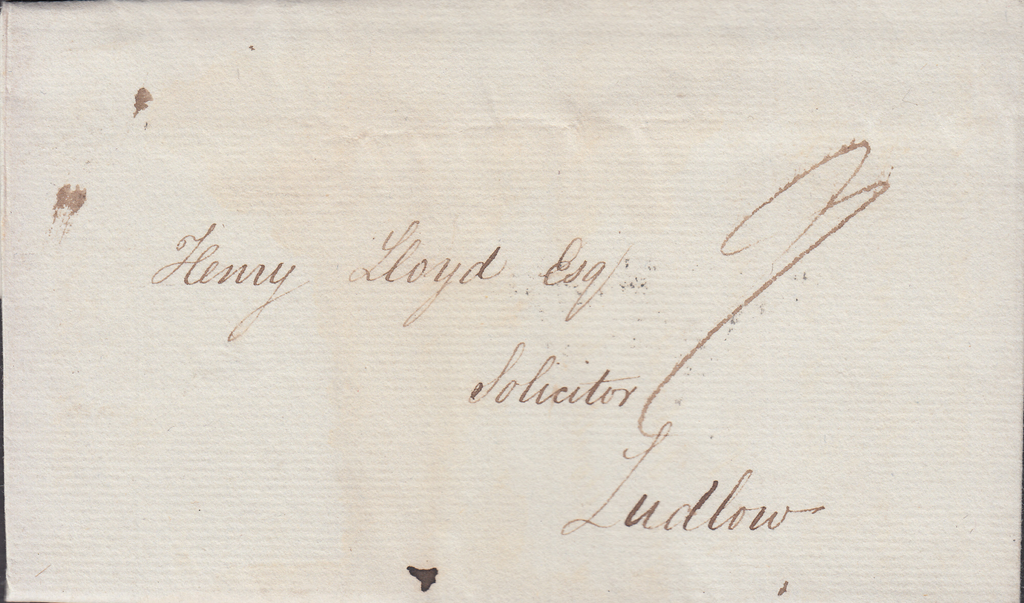 Henry Lloyd Esq/
Solicitor
Ludlow